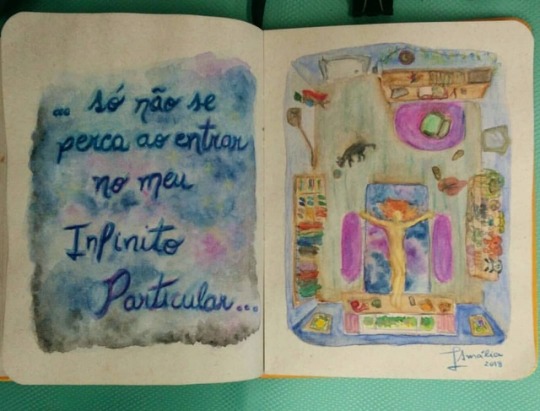 ... só não se
perca ao entrar
no meu
Infinito
Particular...